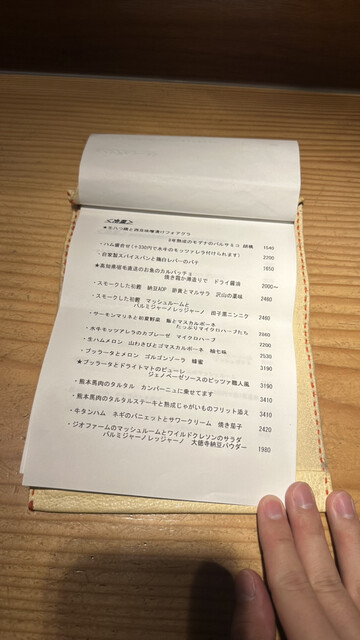 <冷菜>
★生八つ橋と西京味噌漬けフォアグラ
8年熟成のモデナのバルサミコ 胡桃 1540
・ハム盛合せ(+330円で水牛のモッツァレラ付けられます) 2200
・自家製スパイスパンと鶏白レバーのパテ 1650
★高知県宿毛直送のお魚のカルパッチョ
焼き霞か海造りで ドライ醤油 2000〜
・スモークした和鰹 納豆AOP 卵黄とマルサラ 沢山の薬味 2460
・スモークした和鰹 マッシュルームと
パルミジャーノレッジャーノ 田子黒ニンニク 2460
・サーモンマリネと初夏野菜 鮎とマスカルポーネ
たっぷりマイクロハーブたち
・水牛モッツァレラのカプレーゼ マイクロハーブ
・生ハムメロン 山わさびとゴマスカルポーネ 柚七味 2530
・ブッラータとメロン ゴルゴンゾーラ 蜂蜜 3190
★ブッラータとドライトマトのピューレ
ジェノベーゼソースのピッツァ職人風 3190
・熊本馬肉のタルタル カンパーニュに乗せてます 3410
・熊本馬肉のタルタルステーキと熟成じゃがいものフリット添え 3410
・牛タンハム ネギのパニエットとサワークリーム 焼き茄子 2420
・ジオファームのマッシュルームとワイルドクレソンのサラダ
パルミジャーノレッジャーノ 大徳寺納豆パウダー 1980